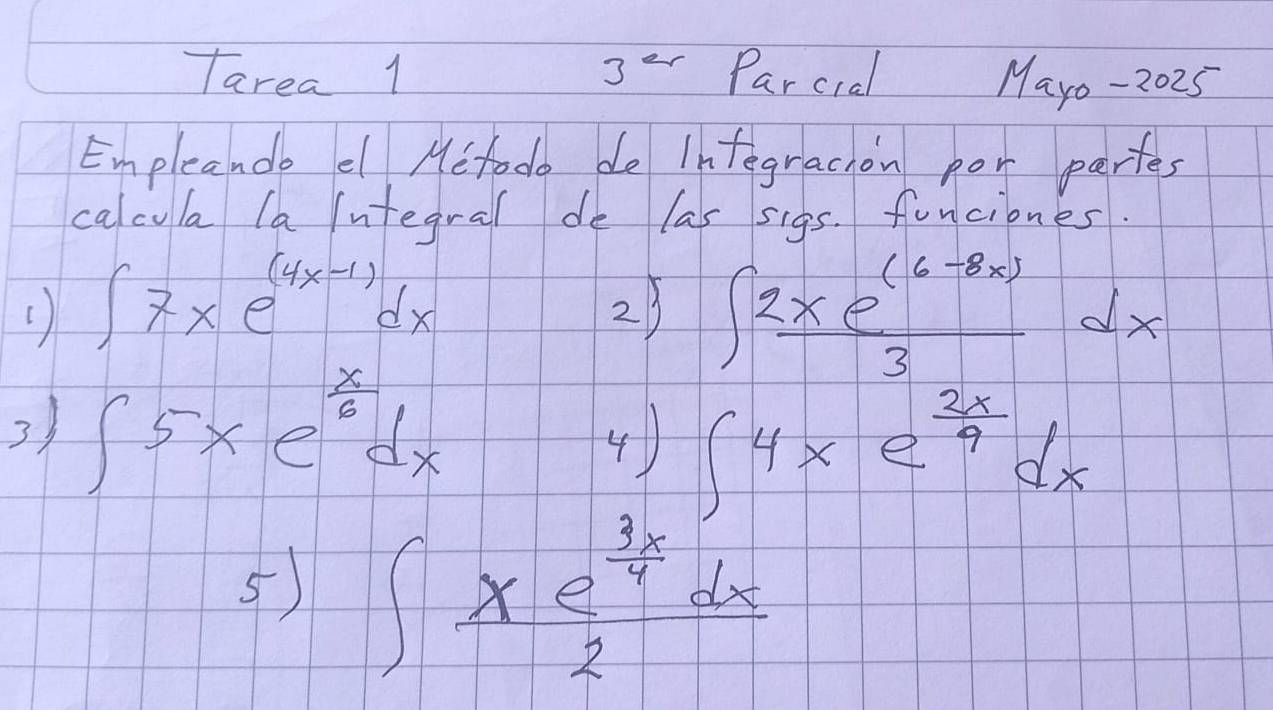 Tarea 1 3er Parcial Mayo-2025
Empleando el Método de Integración por partes
calcula la Integral de las sigs. funciones.
1) ∫ 7x e^(4x-1) dx 2) ∫ 2x e^(6-8x)/3 dx
3) ∫ 5x e^(x/6) dx 4) ∫ 4x e^(2x/9) dx
5) ∫ x e^(3x/4) dx/2